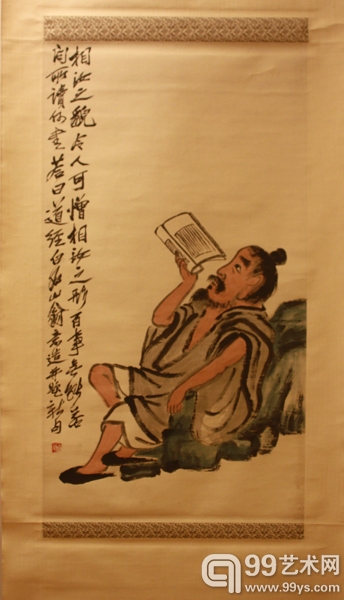 相汝之貌令人可憎相汝之形百事无能若
问所讀何書荅曰道經白石山翁造并題新句
99艺术网
www.99ys.com